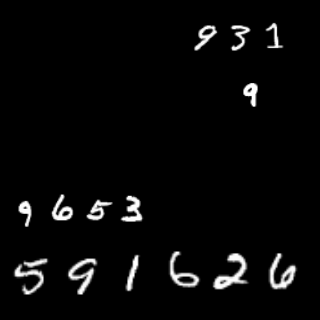 931
9
9653
591626